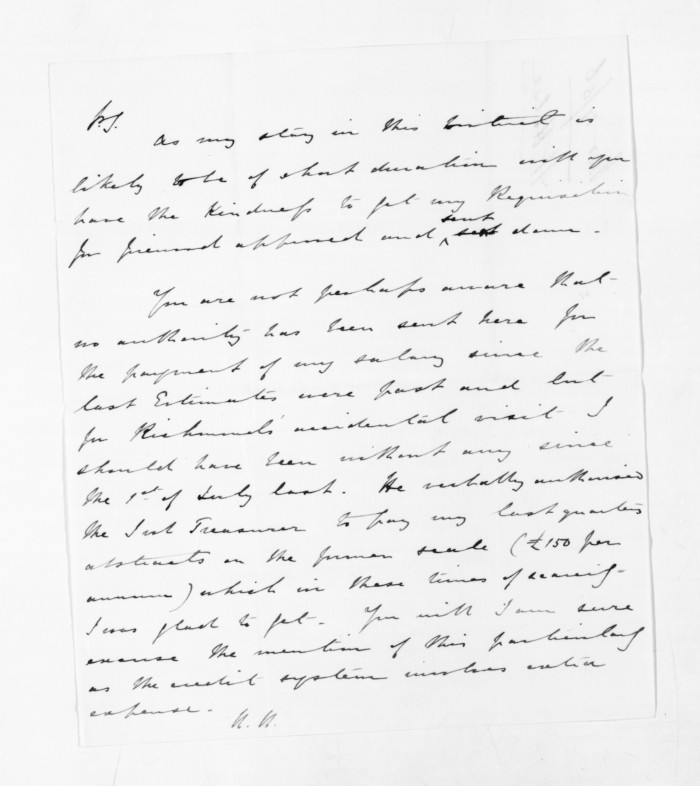 P.S.
As my stay in this District is
likely to be of short duration will you
have the kindness to get my Requisition
for firewood approved and sent down.
You are not perhaps aware that
no authority has been sent here for
the payment of my salary since the
last Estimates were past and but
for Richmond's accidental visit I
should have been without any since
the 1st of July last. He verbally authorised
the Sub Treasurer to pay my last quarters
abstracts on the former scale (£150 per
annum) which in these times of scarcity
I was glad to get. You will I am sure
excuse the mention of this particularly
as the credit system involves extra
expense.
H. H.